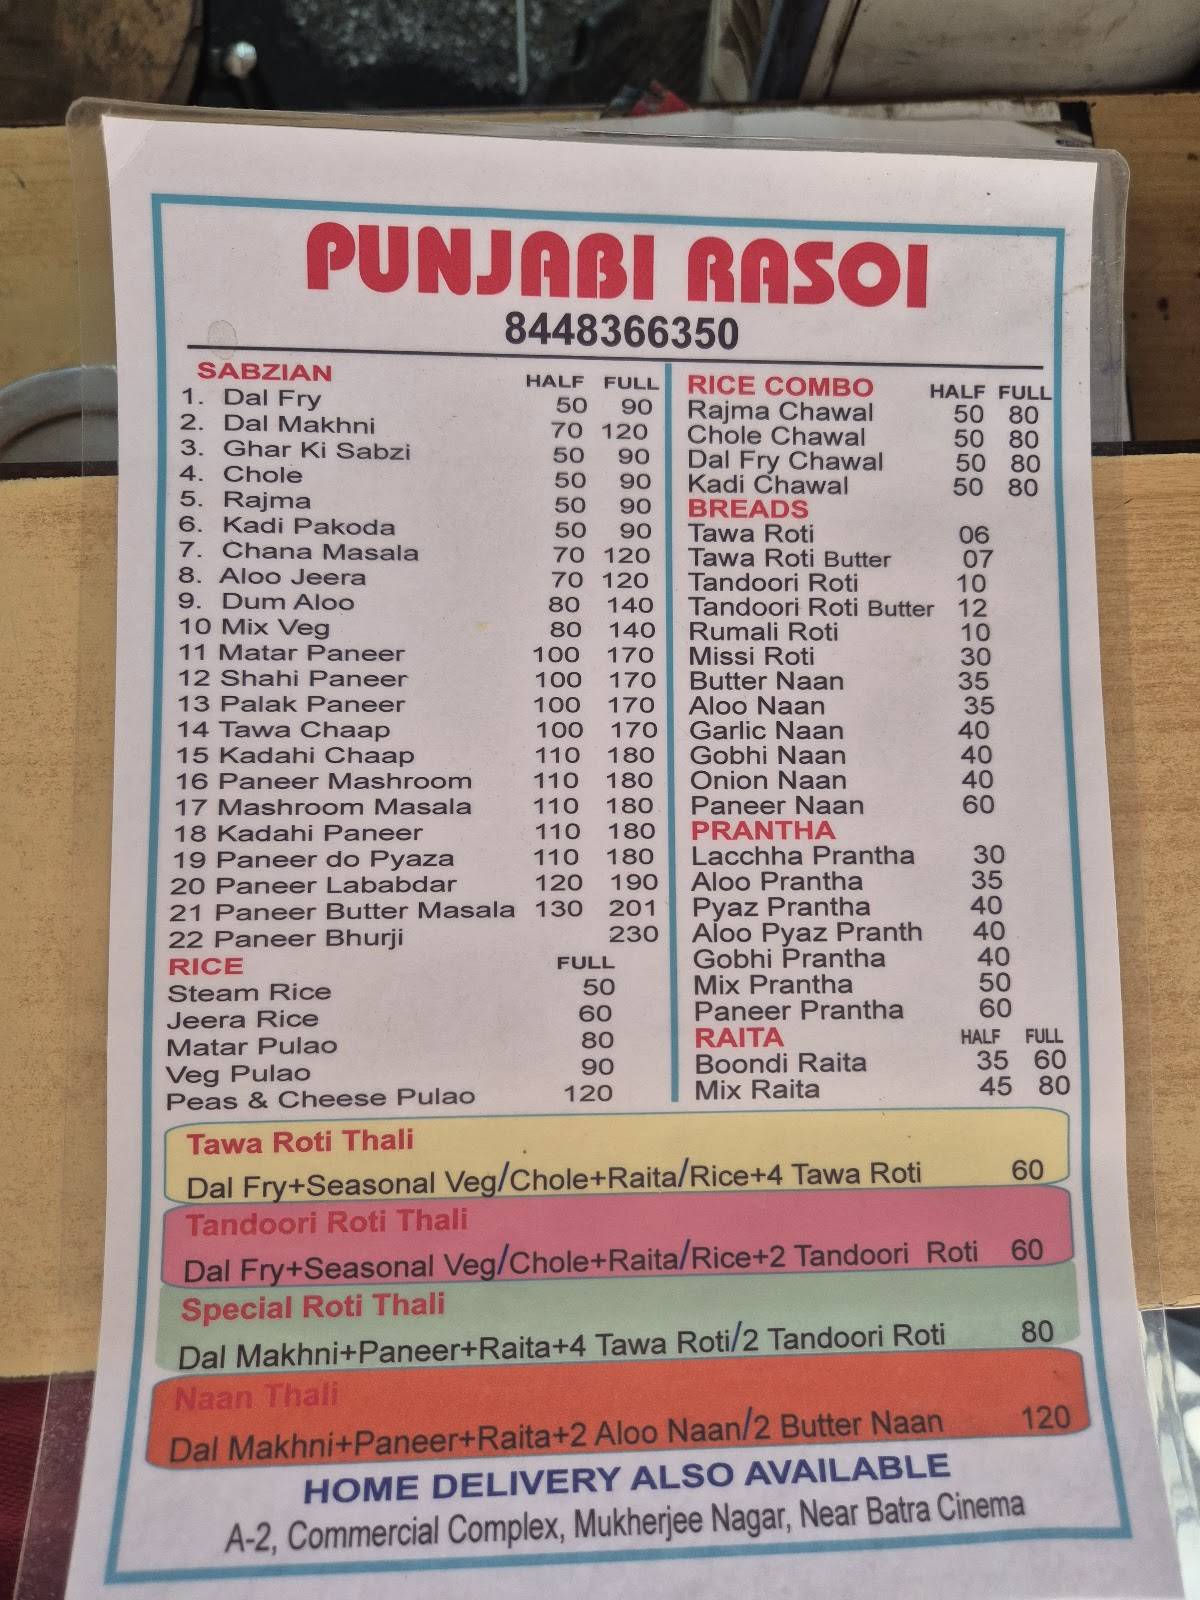 PUNJABI RASOI
8448366350
SABZIAN HALF FULL
1. Dal Fry 50 90
2. Dal Makhni 70 120
3. Ghar Ki Sabzi 50 90
4. Chole 50 90
5. Rajma 50 90
6. Kadi Pakoda 50 90
7. Chana Masala 70 120
8. Aloo Jeera 70 120
9. Dum Aloo 80 140
10 Mix Veg 80 140
11 Matar Paneer 100 170
12 Shahi Paneer 100 170
13 Palak Paneer 100 170
14 Tawa Chaap 100 170
15 Kadahi Chaap 110 180
16 Paneer Mashroom 110 180
17 Mashroom Masala 110 180
18 Kadahi Paneer 110 180
19 Paneer do Pyaza 110 180
20 Paneer Lababdar 120 190
21 Paneer Butter Masala 130 201
22 Paneer Bhurji 230
RICE FULL
Steam Rice 50
Jeera Rice 60
Matar Pulao 80
Veg Pulao 90
Peas & Cheese Pulao 120
RICE COMBO HALF FULL
Rajma Chawal 50 80
Chole Chawal 50 80
Dal Fry Chawal 50 80
Kadi Chawal 50 80
BREADS
Tawa Roti 06
Tawa Roti Butter 07
Tandoori Roti 10
Tandoori Roti Butter 12
Rumali Roti 10
Missi Roti 30
Butter Naan 35
Aloo Naan 35
Garlic Naan 40
Gobhi Naan 40
Onion Naan 40
Paneer Naan 60
PRANTHA
Lacchha Prantha 30
Aloo Prantha 35
Pyaz Prantha 40
Aloo Pyaz Pranth 40
Gobhi Prantha 40
Mix Prantha 50
Paneer Prantha 60
RAITA HALF FULL
Boondi Raita 35 60
Mix Raita 45 80
Tawa Roti Thali
Dal Fry+Seasonal Veg/Chole+Raita/Rice+4 Tawa Roti 60
Tandoori Roti Thali
Dal Fry+Seasonal Veg/Chole+Raita/Rice+2 Tandoori Roti 60
Special Roti Thali
Dal Makhni+Paneer+Raita+4 Tawa Roti/2 Tandoori Roti 80
Naan Thali
Dal Makhni+Paneer+Raita+2 Aloo Naan/2 Butter Naan 120
HOME DELIVERY ALSO AVAILABLE
A-2, Commercial Complex, Mukherjee Nagar, Near Batra Cinema